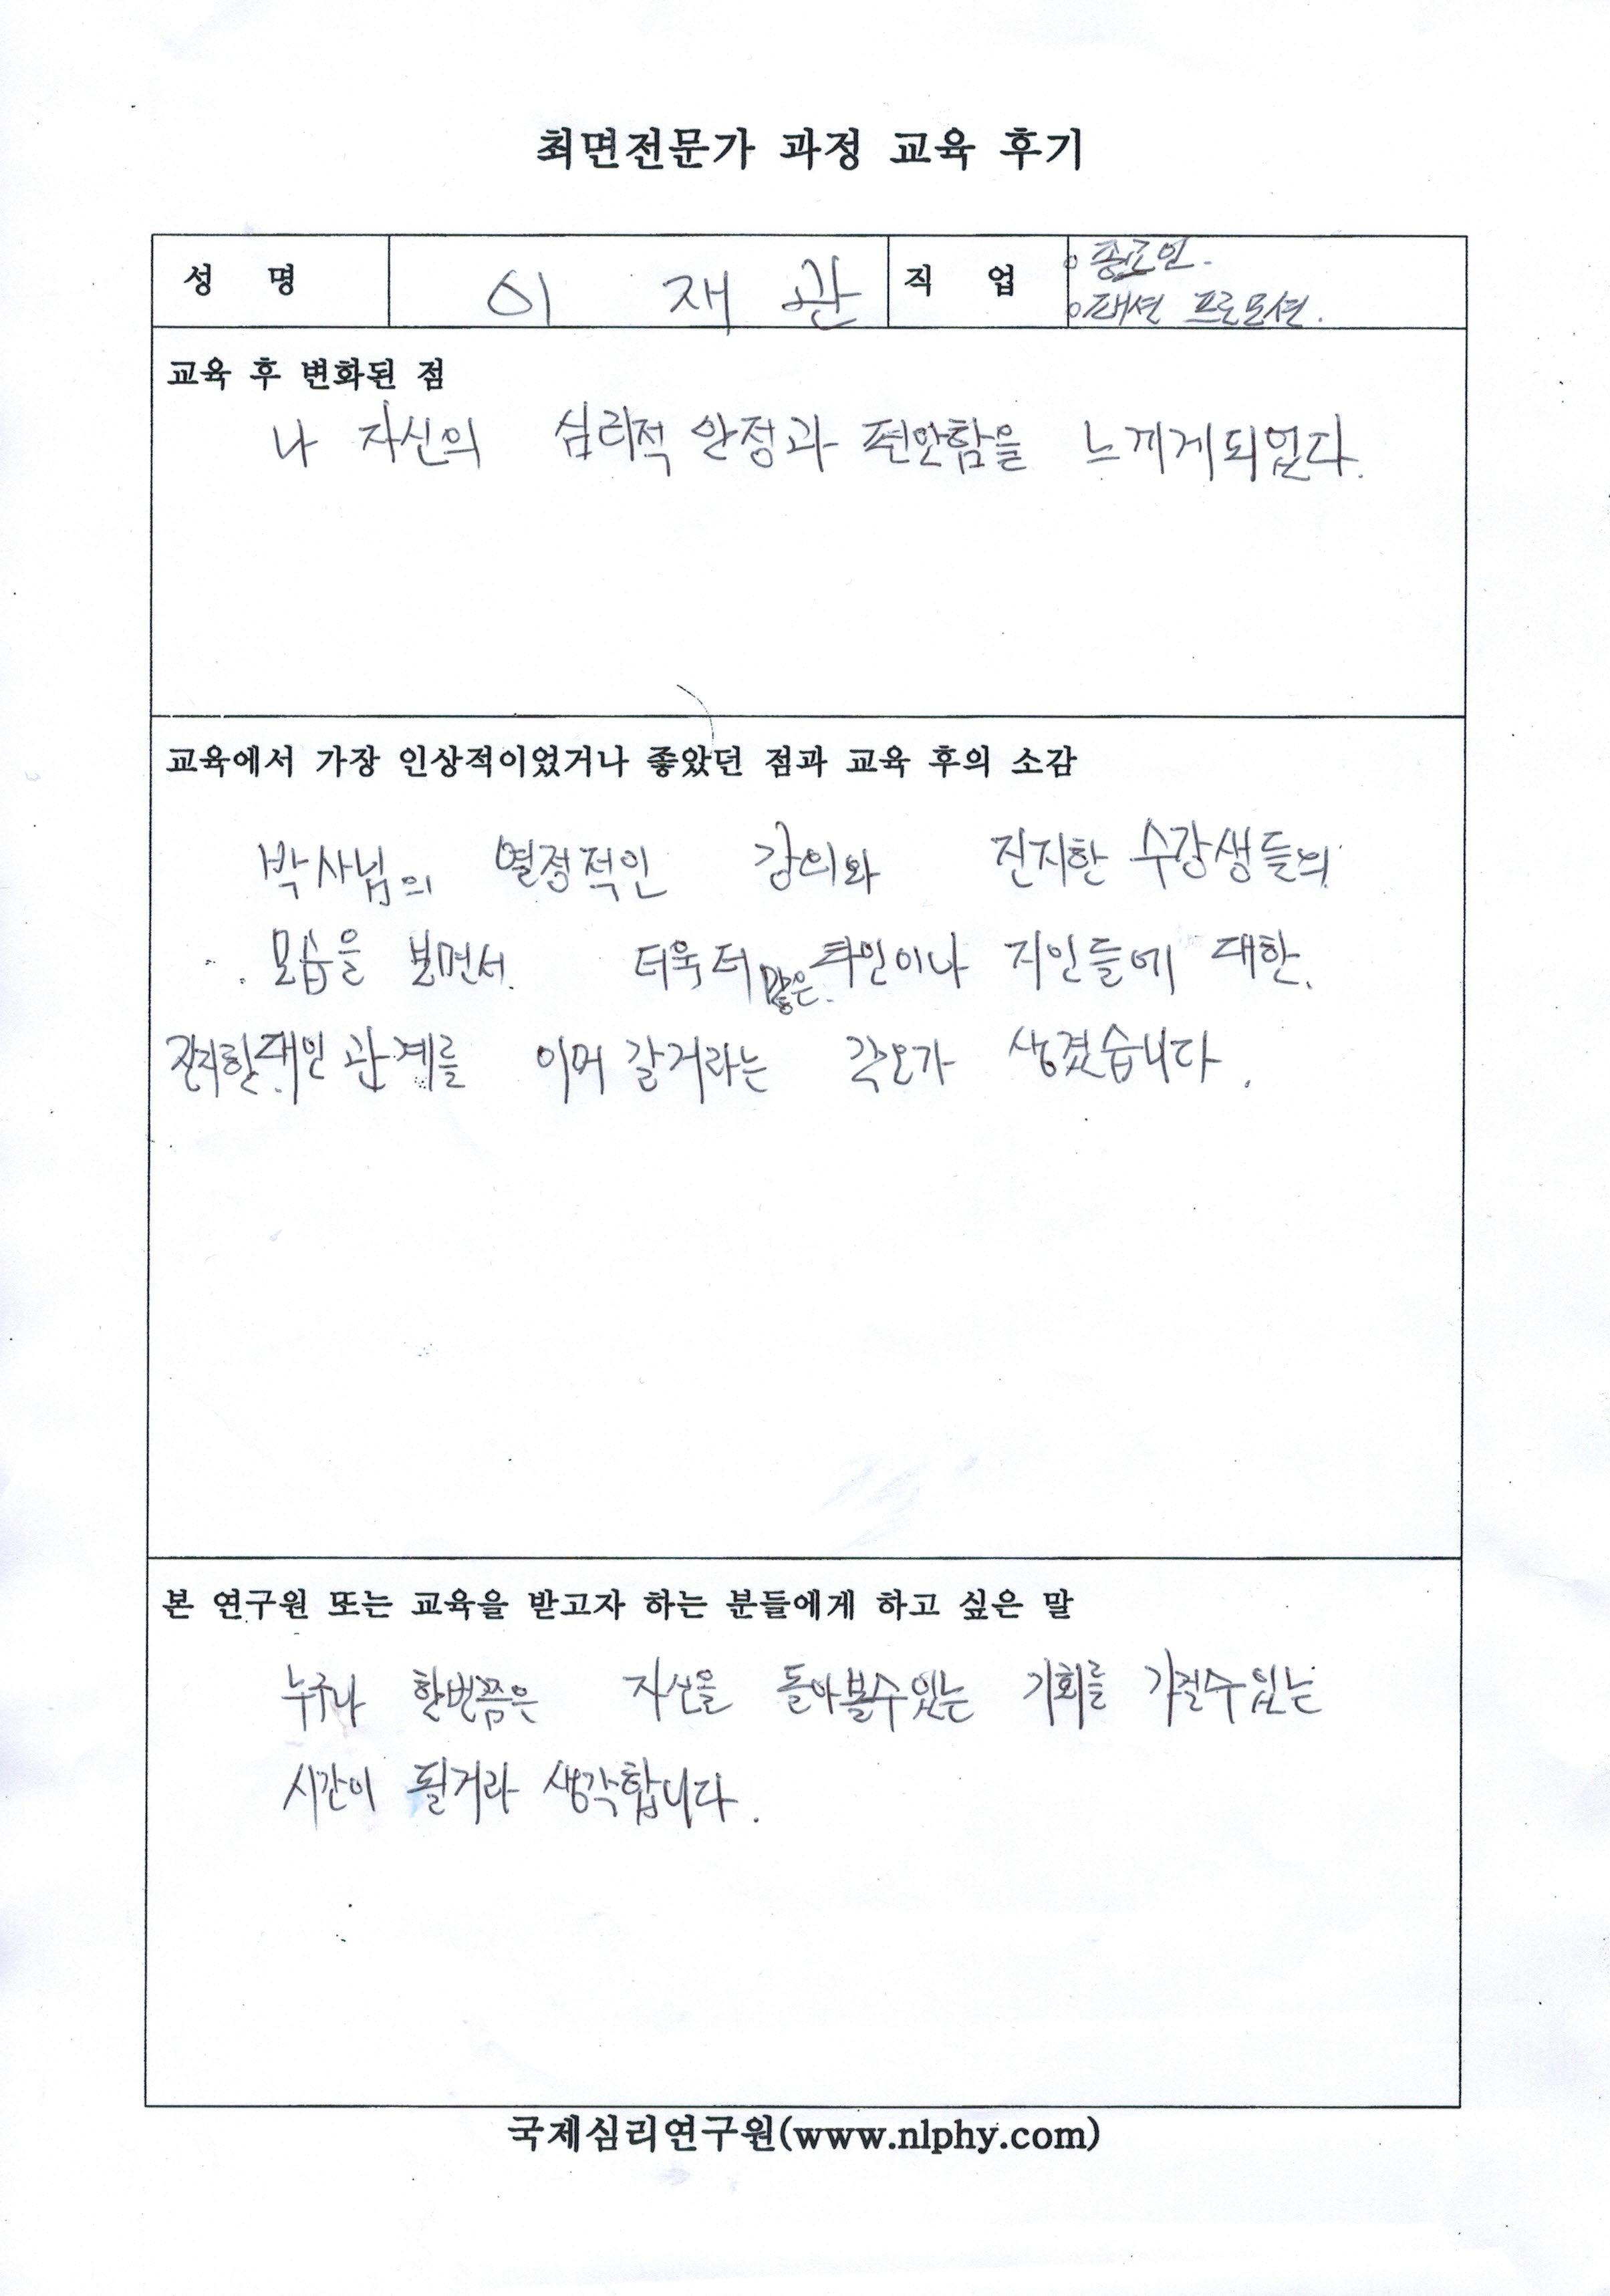 최면전문가 과정 교육 후기
성 명 이 재 관 직 업 ○ 종교인.
○ 패션 프로모션.
교육 후 변화된 점
나 자신의 심리적 안정과 편안함을 느끼게되었다.
교육에서 가장 인상적이었거나 좋았던 점과 교육 후의 소감
박사님의 열정적인 강의와 진지한 수강생들의
모습을 보면서. 더욱 더 많은. 타인이나 지인들에 대한.
진지한 대인 관계를 이뤄 갈거라는 각오가 생겼습니다.
본 연구원 또는 교육을 받고자 하는 분들에게 하고 싶은 말
누구나 한번쯤은 자신을 돌아볼수있는 기회를 가질수있는
시간이 될거라 생각합니다.
국제심리연구원(www.nlphy.com)